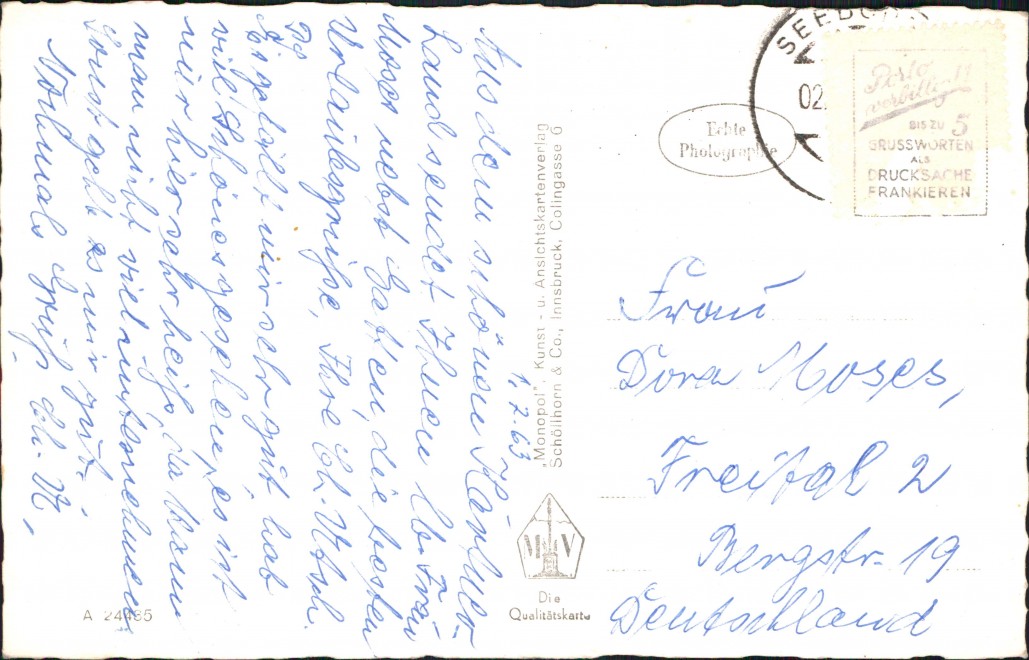 1.7.63
Aus dem schönen Kärtner-
Land sendet Ihnen lb. Frau
Moses nebst Gatten die besten
Urlaubsgrüße, Ihre Ch.
Es gefällt mir sehr gut, hab
viel Schönes gesehen, es ist
nur hier sehr heiß, da kann
man nicht viel unternehmen
Sonst geht es mir gut.
Nochmals Gruß Ch. U,
A 24495
"Monopol", Kunst - u. Ansichtskartenverlag
Schöllhorn & Co., Innsbruck, Colingasse 6
M V
Die
Qualitätskarte
Echte
Photographie
02.
Porto
verbilligt!
BIS ZU 5
GRUSSWORTEN
ALS
DRUCKSACHE
FRANKIEREN
Frau
Dora Moses,
Freital 2
Bergstr. 19
Deutschland